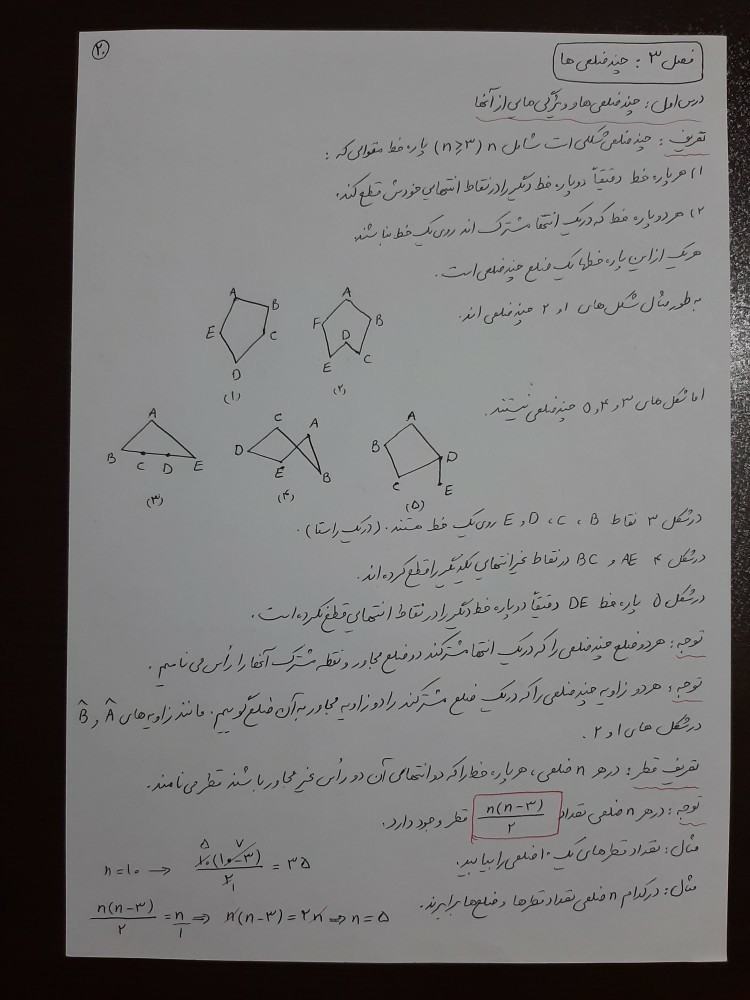 ۲۰
فصل ۳ : چندضلعی ها
درس اول : چندضلعی ها و ویژگی هایی از آنها
تعریف : چندضلعی شکلی است شامل n (n≥۳) پاره خط متوالی که :
۱) هر پاره خط دقیقاً دو پاره خط دیگر را در نقاط انتهایی خودش قطع کند.
۲) هر دو پاره خط که در یک انتها مشترک اند روی یک خط نباشند.
هر یک از این پاره خطها یک ضلع چندضلعی است.
به طور مثال شکل های ۱ و ۲ چندضلعی اند.
A B C D E
(۱)
A B C D E F
(۲)
اما شکل های ۳ و ۴ و ۵ چندضلعی نیستند.
A B C D E
(۳)
C A D E B
(۴)
A B D C E
(۵)
در شکل ۳ نقاط B ، C ، D و E روی یک خط هستند. (در یک راستا).
در شکل ۴ AE و BC در نقاط غیر انتهایی یکدیگر را قطع کرده اند.
در شکل ۵ پاره خط DE دقیقاً دو پاره خط دیگر را در نقاط انتهایی قطع نکرده است.
توجه : هر دو ضلع چندضلعی را که در یک انتها مشترکند دو ضلع مجاور و نقطه مشترک آنها را رأس می نامیم.
توجه : هر دو زاویه چندضلعی را که در یک ضلع مشترکند را دو زاویه مجاور به آن ضلع گوییم. مانند زاویه های Â و B̂
در شکل های ۱ و ۲.
تعریف قطر : در هر n ضلعی ، هر پاره خط را که دو انتهای آن دو رأس غیر مجاور باشند قطر می نامند.
توجه : در هر n ضلعی تعداد n(n-۳)/۲ قطر وجود دارد.
مثال : تعداد قطرهای یک ۱۰ ضلعی را بیابید.
n=۱۰ → ۱۰(۱۰-۳)/۲ = ۳۵
۵ ۷ ۱
مثال : در کدام n ضلعی تعداد قطرها و ضلع ها برابرند.
n(n-۳)/۲ = n/۱ ⇒ n(n-۳) = ۲n ⇒ n = ۵